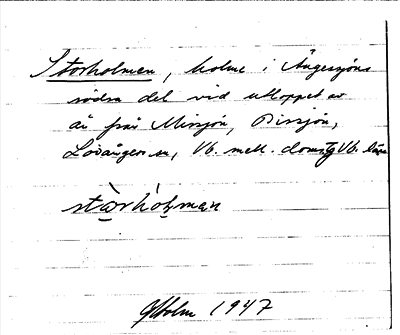 Storholmen, holme i Ängessjöns
södra del vid utloppet av
ån från Missjön, Bissjön,
Lövångers sn, Vb. mell. doms. Vb. län
stàrhòlman
GHolm 1947